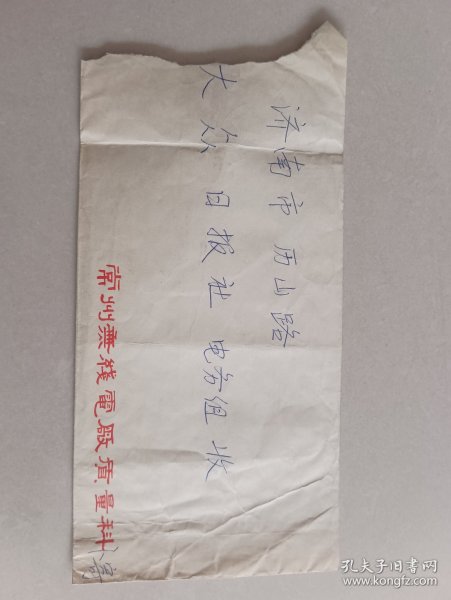 济南市历山路
大众日报社电务组收
常州無綫電厰質量科 寄
孔夫子旧书网
www.kongfz.com